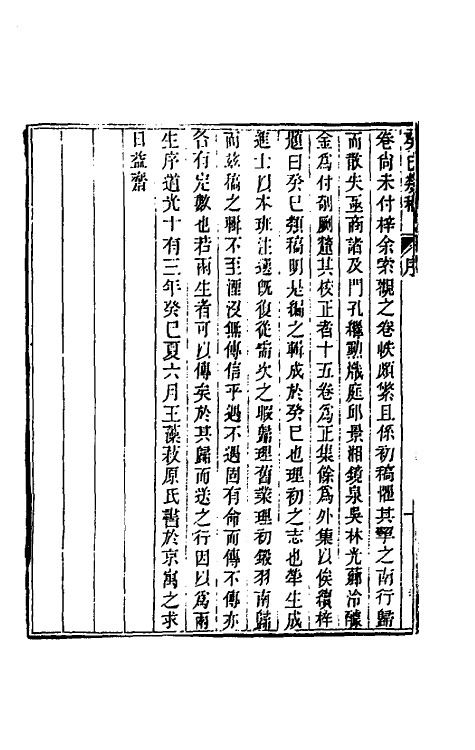 癸巳類稿 序 一
卷尙未付梓余索觀之卷帙頗繁且係初稿懼其挈之南行歸
而散失亟商諸及門孔繼勲熾庭邱景湘鏡泉吳林光蓟冷釀
金爲付剞劂釐其校正者十五卷爲正集餘爲外集以俟續梓
題曰癸巳類稿明是編之輯成於癸巳也理初之志也犖生成
進士以本班注選旣復從需次之暇歸理舊業理初鎩羽南歸
而玆稿之輯不至湮沒無傳信乎遇不遇固有命而傳不傳亦
各有定數也若兩生者可以傳矣於其歸而送之行因以爲兩
生序道光十有三年癸巳夏六月王藻菽原氏書於京寓之求
日益齋